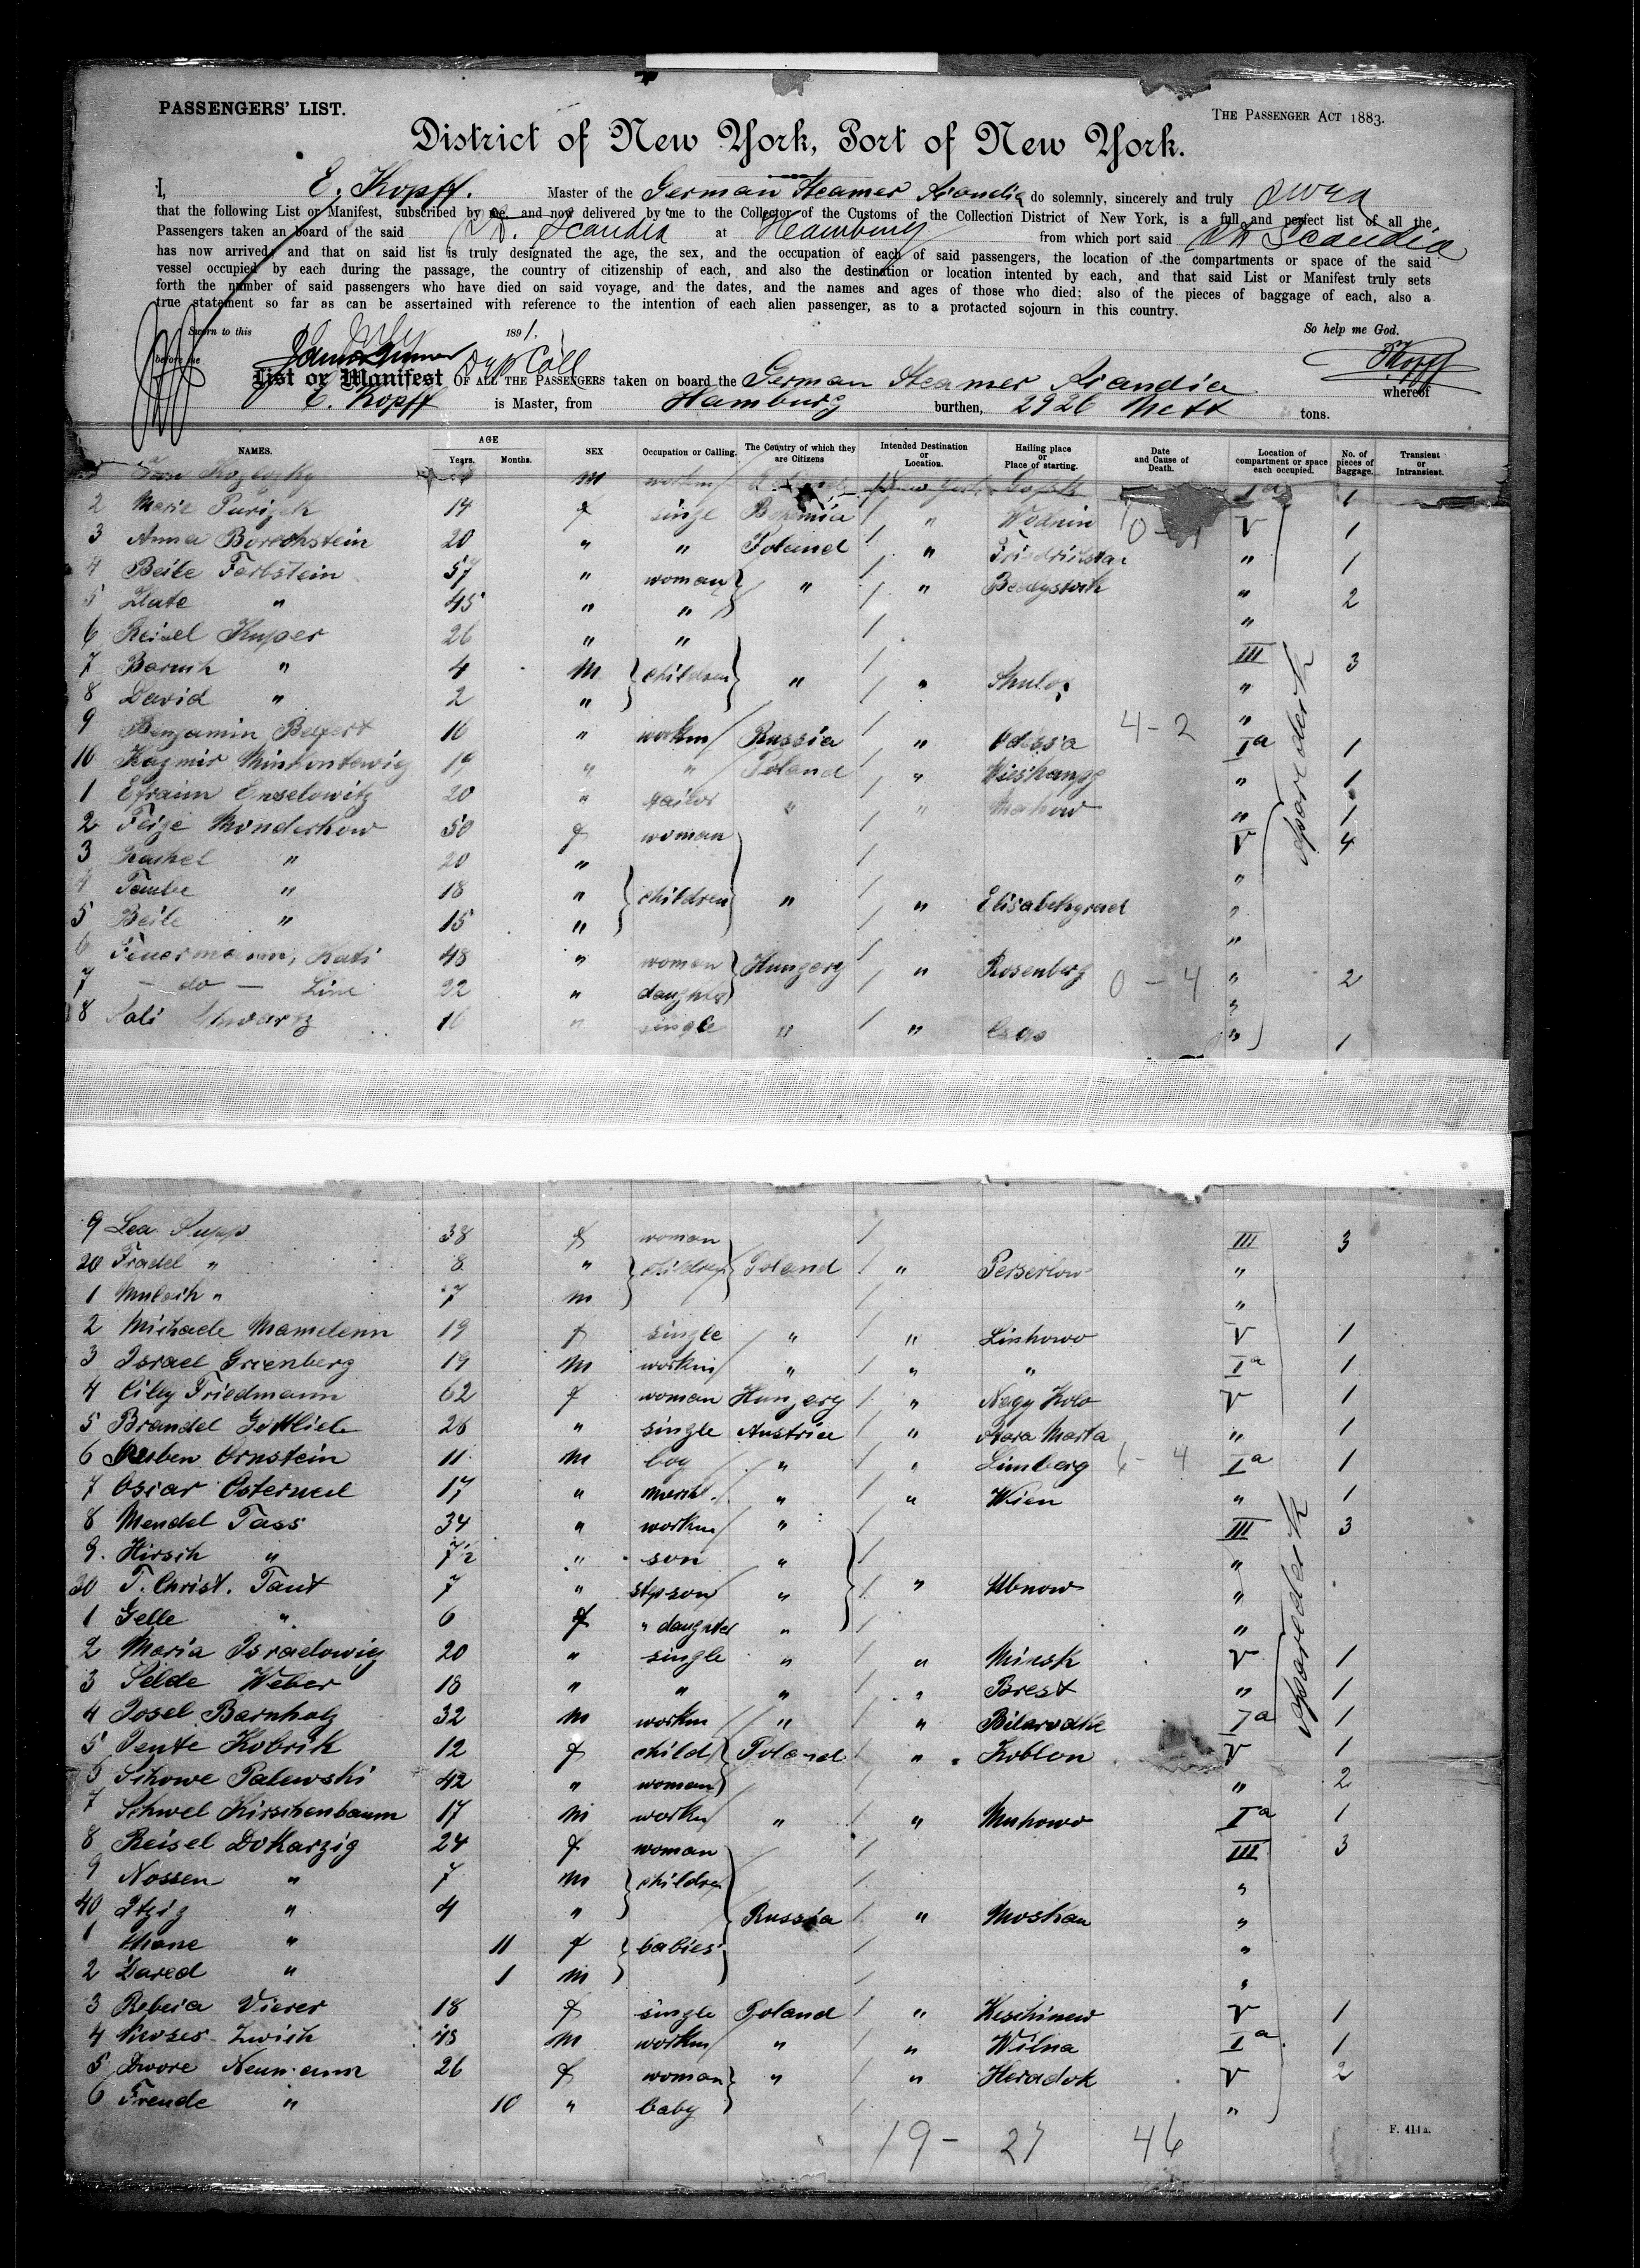 PASSENGERS' LIST.
THE PASSENGER ACT 1883.
District of New York, Port of New York.
I, E. Kopff. Master of the German Steamer Scandia do solemnly, sincerely and truly swear
that the following List or Manifest, subscribed by me, and now delivered by me to the Collector of the Customs of the Collection District of New York, is a full and perfect list of all the
Passengers taken on board of the said SS. Scandia at Hamburg from which port said SS Scandia
has now arrived, and that on said list is truly designated the age, the sex, and the occupation of each of said passengers, the location of the compartments or space of the said
vessel occupied by each during the passage, the country of citizenship of each, and also the destination or location intented by each, and that said List or Manifest truly sets
forth the number of said passengers who have died on said voyage, and the dates, and the names and ages of those who died; also of the pieces of baggage of each, also a
true statement so far as can be assertained with reference to the intention of each alien passenger, as to a protacted sojourn in this country.
Sworn to this 1891. So help me God.
before me Dep Coll EKopff
List or Manifest OF ALL THE PASSENGERS taken on board the German Steamer Scandia whereof
E. Kopff is Master, from Hamburg burthen, 2926 Nett tons.
NAMES. AGE Years. Months. SEX Occupation or Calling. The Country of which they are Citizens Intended Destination or Location. Hailing place or Place of starting. Date and Cause of Death. Location of compartment or space each occupied. No. of pieces of Baggage. Transient or Intransient.
m workm New York Ia 1
2 Marie 14 f singl Bohemia / " Wodnin V 1
3 Anna Borechstein 20 " " Poland / " " 1
4 Beile Ferbstein 57 " woman " / " " 2
5 Zlate " 45 " " / "
6 Reisel Kuper 26 " " / III 3
7 Baruch " 4 m children " / " "
8 David " 2 " / "
9 Benjamin 16 " workm Russia / " Odessa 4-2 Ia 1
10 Kazmir 19 " " Poland / " " 1
1 Efraim Enselowitz 20 " tailor " / " Makow " 1
2 Feige Munderkow 50 f woman / V 4
3 Raskel " 20 " / "
4 Taube " 18 " children " / " Elisabethgrad "
5 Beile " 15 " / "
6 Feuermann, Kati 48 " woman Hungery / " Rosenberg 0-4 " 2
7 - do - Line 22 " daughter "
8 Sali Schwartz 16 " single " / " " 1
9 Lea Supp 38 f woman / III 3
20 Fradel " 8 " children Poland / " Perserlow "
1 " 7 m / "
2 Michaele Mamdenn 19 f single " " Linkowo V 1
3 Israel Grienberg 19 m workm " / " " Ia 1
4 Cily Friedmann 62 f woman Hungery / " Nagy Kolo V 1
5 Brandel Gottlieb 26 " single Austria " " 1
6 Ruben Ornstein 11 m boy " / " Limberg 4 Ia 1
7 Oscar Osterweil 17 " " / " Wien " 1
8 Mendel Tass 34 " workm " / III 3
9. Hirsch " " son " / "
30 T. Christ. Taut 7 " stepson " / " Ubnow "
1 Gelle " 6 f " daughter " / "
2 Maria Israelowig 20 " single " / " Minsk V 1
3 Selde Weber 18 " " " / " Brest " 1
4 Josel Barnholz 32 m workm " / " Bilarodke Ia 1
5 Pente Kobrik 12 f child Poland / " Koblon V 1
42 " woman / " 2
7 Schwel Kirschenbaum 17 m workm " / " Muhowo Ia 1
8 Reisel Dokarzig 24 f woman / III 3
9 Nossen " 7 m children / "
40 Itzig " 4 " Russia / " Moskau "
1 Chane " 11 f babies / "
2 " 1 m / "
3 Rebeca Vierer 18 f single Poland / " Keschinew V 1
4 Moses m workm " / " Wilna Ia 1
5 Dwore Neumann 26 f woman " / " Heradok V 2
6 Freude " 10 " baby / "
19 - 27 46
F. 414a.